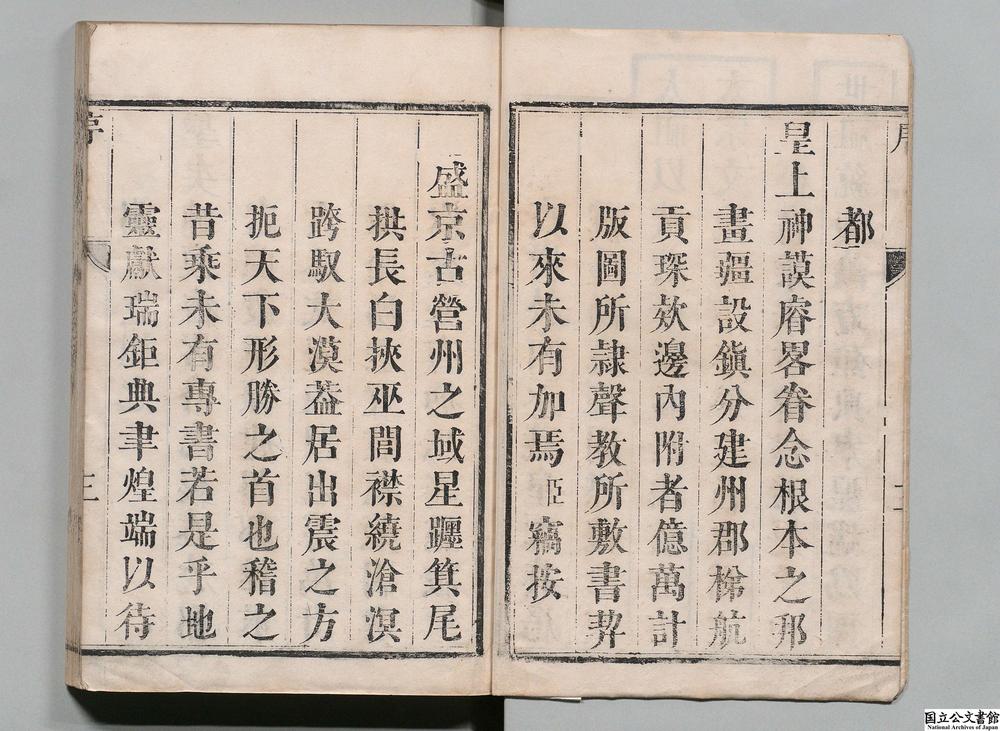 都
皇上神謨睿畧眷念根本之邦
畫疆設鎭分建州郡梯航
貢琛欵邊內附者億萬計
版圖所隷聲教所敷書契
以來未有加焉臣竊按
盛京古營州之域星躔箕尾
拱長白挾巫閭襟繞滄溟
跨馭大漠葢居出震之方
扼天下形勝之首也稽之
昔乘未有專書若是乎地
靈獻瑞鉅典聿煌端以待
序
三
国立公文書館
National Archives of Japan